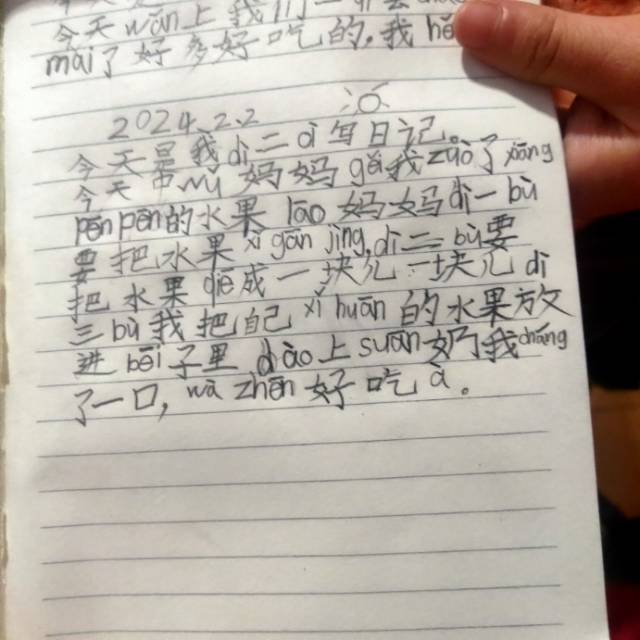 今天wǎn上我们一
mǎi了好多好吃的,我hē
2024.2.2
今天是我dì二cì写日记。
今天wǔ妈妈gěi我zuò了xiāng
pēn pēn的水果lāo妈妈dì一bù
要把水果xǐ gān jìng,dì二bù要
把水果qiē成一块儿一块儿dì
三bù我把自己xǐ huān的水果放
进bēi子里dào上suān奶我cháng
了一口,wā zhēn好吃à。